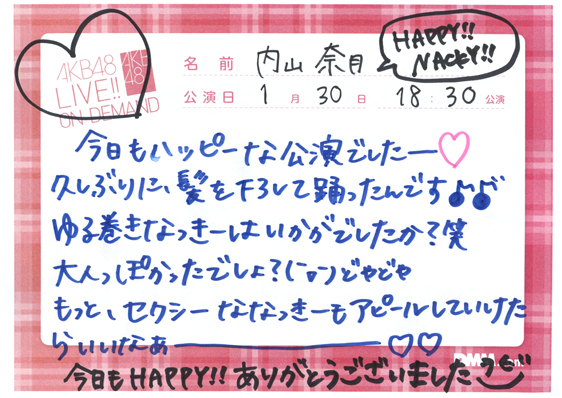 AKB48
LIVE!!
ON DEMAND
AKB
48
名前 内山 奈月
HAPPY!!
NACKY!!
公演日 1月30日 18:30公演
今日もハッピーな公演でしたー♡
久しぶりに、髪を下ろして踊ったんです♪♪
ゆる巻きなっきーはいかがでしたか?笑
大人っぽかったでしょ?(¨)どやどや
もっと、セクシーななっきーもアピールしていけた
らいいなぁー♡♡
DMM.com
今日もHAPPY!!ありがとうございました